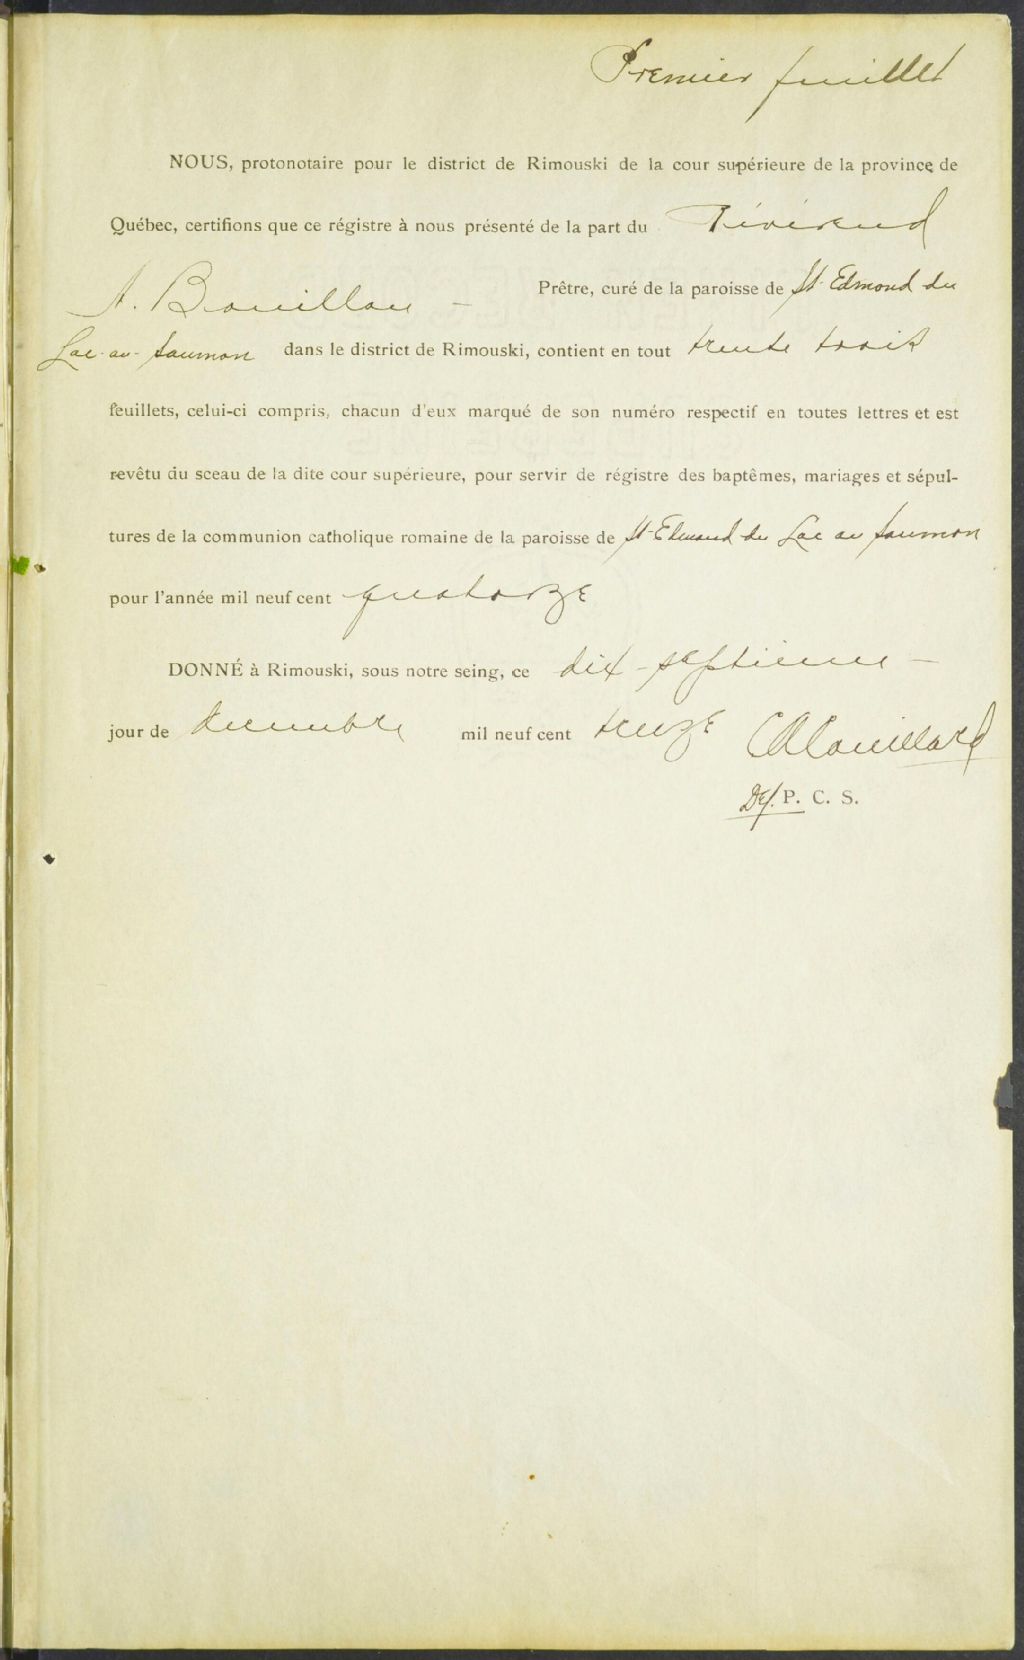 Premier feuillet
NOUS, protonotaire pour le district de Rimouski de la cour supérieure de la province de
Québec, certifions que ce régistre à nous présenté de la part du Révérend
A. Bouillon - Prêtre, curé de la paroisse de St Edmond du
Lac-au-Saumon dans le district de Rimouski, contient en tout trente trois
feuillets, celui-ci compris, chacun d'eux marqué de son numéro respectif en toutes lettres et est
revêtu du sceau de la dite cour supérieure, pour servir de régistre des baptêmes, mariages et sépul-
tures de la communion catholique romaine de la paroisse de St-Edmond du Lac au Saumon
pour l'année mil neuf cent quatorze
DONNÉ à Rimouski, sous notre seing, ce dix-septieme -
jour de decembre mil neuf cent treize
Dep. P. C. S.